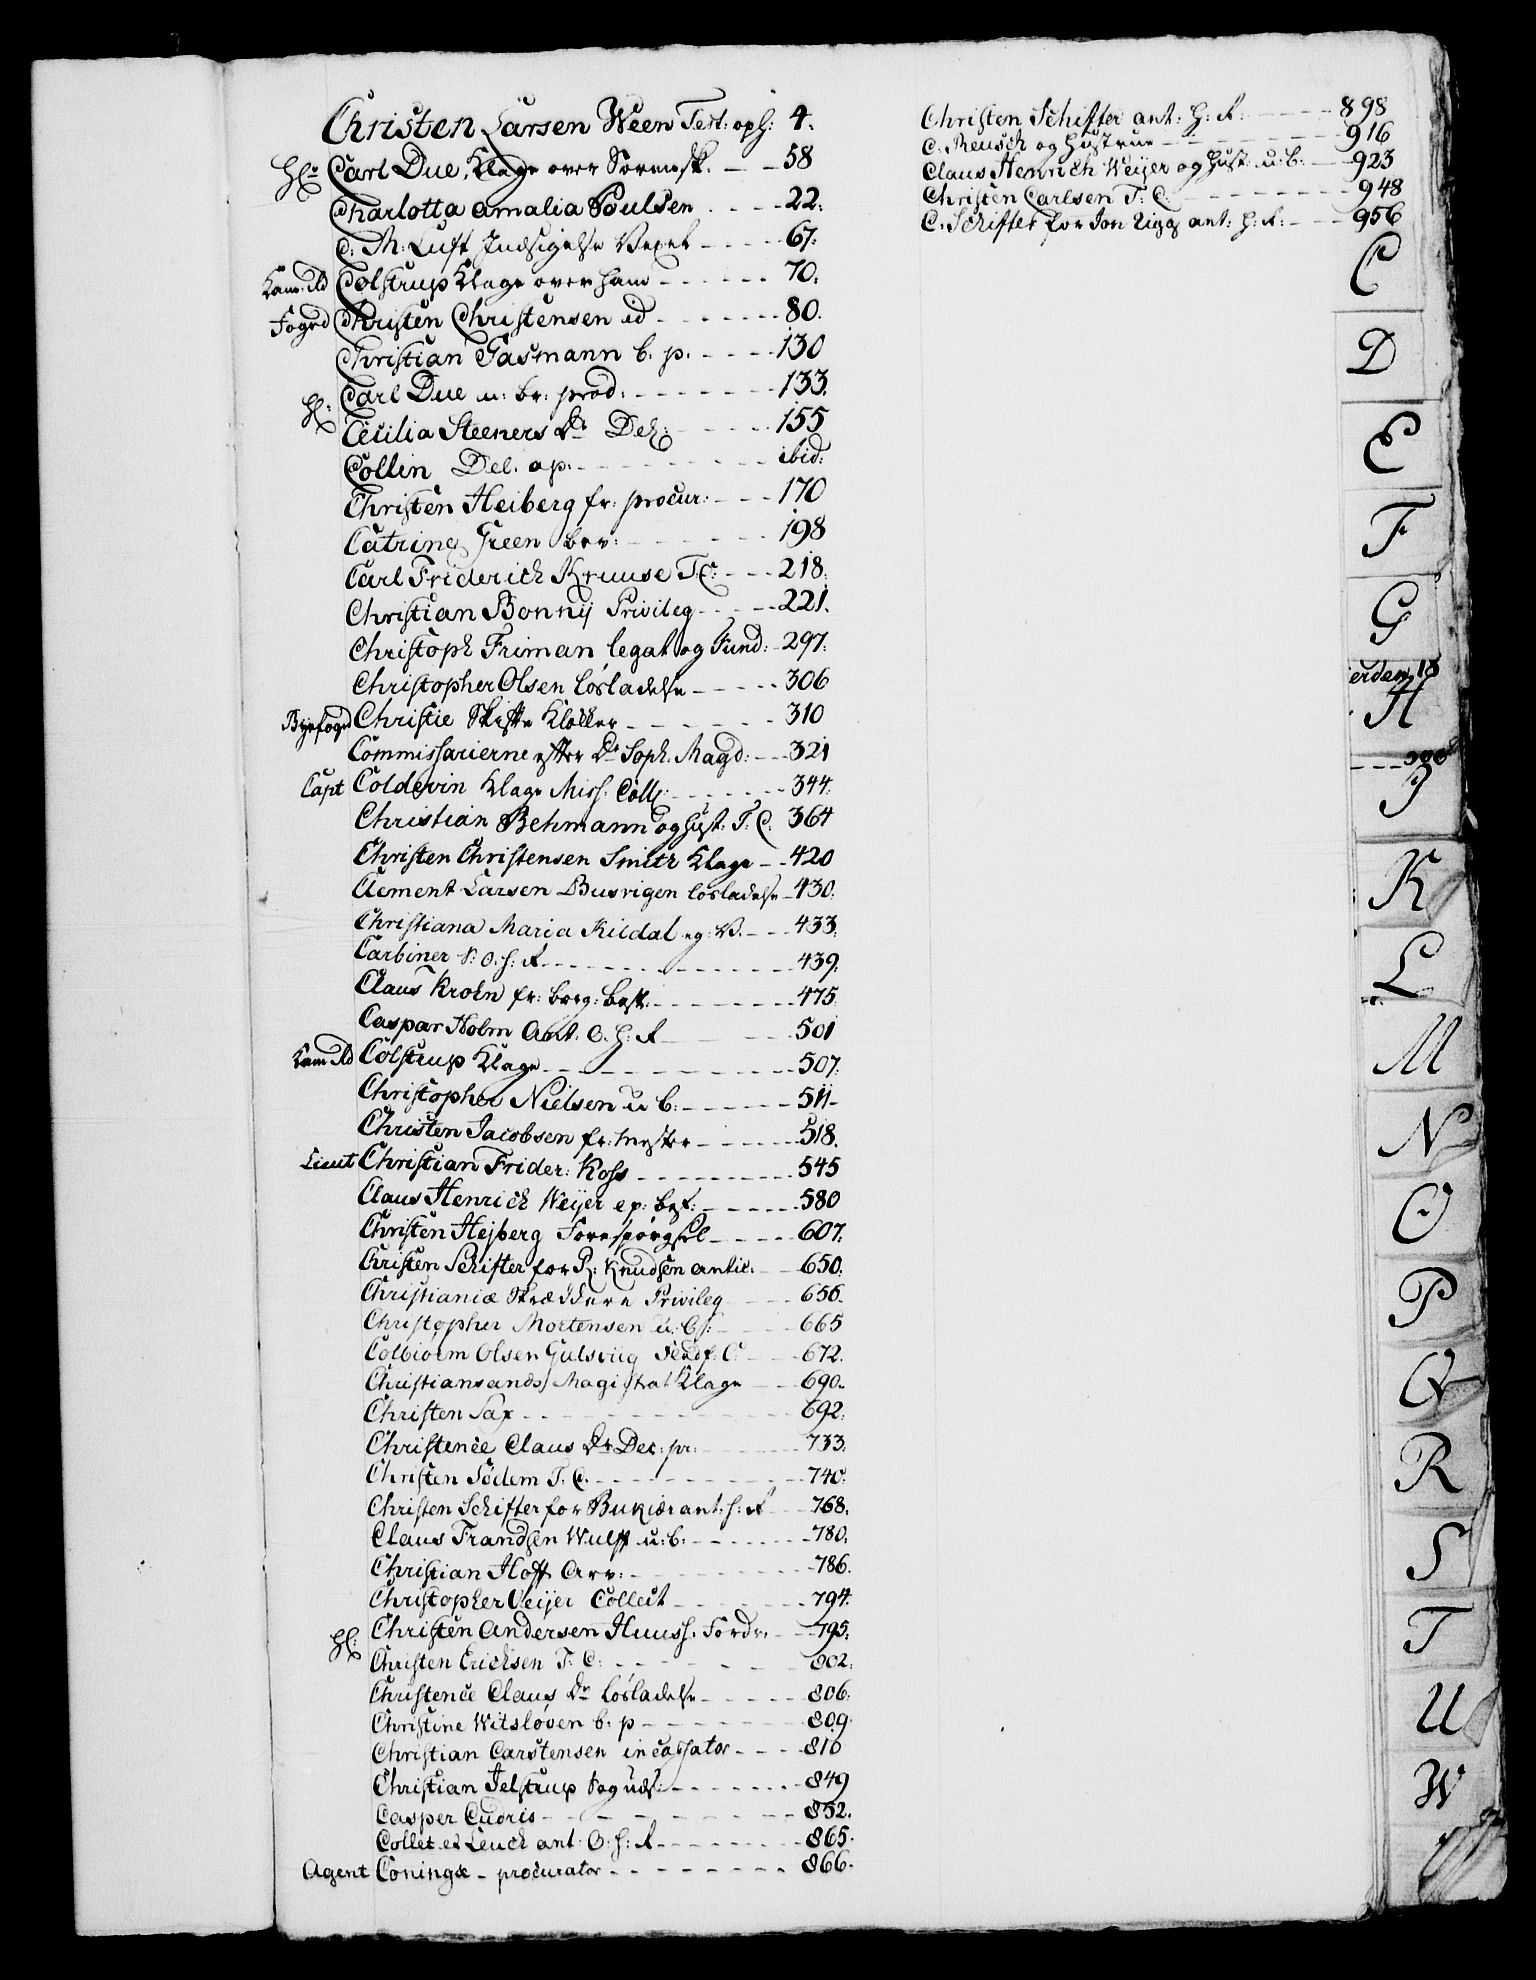 Christen Larsen Ween Test: oph: 4.
Hr: Carl Due, Klage over Sorensk. - - 58
Charlotta Amalia Poulsen - - - - 22.
C. M: Luft Indsigelse - - - - 67.
Kam:Rd Colstrup Klage over ham - - - - - - 70.
Foged Christen Christensen id - - - - - - 80.
Christian Gasmann b. p. - - - - 130
Hr: Carl Due u: br: prod: - - - - - - 133.
Cecilia Steeners Dr Del: - - - - - 155
Collin Del. op. - - - - - - - ibid:
Christen Heiberg fr: procur: - - - 170
Catrine Green bev: - - - - - - 198
Carl Friderich Kruuse T. C: - - - 218.
Christian Bonnij Privileg - - - - 221.
Christoph Friman legat og Fund: - 297.
Christopher Olsen losladelse - - - - - 306
Byefoged Christie Skifte Klocker - - - - - - 310
Commissarierne efter Dr Soph. Magd: - - - 321
Capt Coldevin Klage Miss. Coll: - - - - - - 344.
Christian Behmann og Hust: T: C: 364
Christen Christensen Smitz Klage - - 420
Clement Larsen Busvigen losladelse - 430.
Christiana Maria Kildal eg: V. - - - 433.
Carbiner S: O. H: R - - - - - - - - - - 439.
Claus Krohn fr: borg: besk: - - - - - - - 475
Caspar Holm Ant. O. H: R - - - - - 501
Kam Rd Colstrup Klage - - - - - - - - - - 507.
Christopher Nielsen u b: - - - - - - 511-
Christen Jacobsen fr: mester - - - - - - 518.
Lieut Christian Frider: Koss - - - - - - - - - - 545
Claus Henrich Weijer ep: bef: - - - - - - 580
Christen Hejberg Forespørgsel - - - - - 607.
Christen Schifter for P: Knudsen antic: - - 650.
Christianiæ Skræddere Privileg - - - - 656.
Christopher Mortensen u: b: - - - - 665
Colbiorm Olsen Gulsviig C: - - - - 672.
Christiansands Magistrat Klage - - - 690.
Christen Sax - - - - - - - - - - - 692.
Christence Claus Dr Dec: pr: - - - - - - 733.
Christen Sodem T. C. - - - - - - - - - - 740.
Christen Schifter for Bukier ant. H: R - - 768.
Claus Frandsen Wulff u: b: - - - - - - - - 780.
Christian Hoff Arv: - - - - - - - - - 786.
Christopher Veijer Collect - - - - - - - 794.
Hr: Christen Andersen Huus. Fordr. - - 795.
Christen Erichsen T. C: - - - - - - 802.
Christence Claus Dr Losladelse - - - - - 806.
Christine Witsløven b. p - - - - - - - - 809.
Christian Carstensen incassator - - - - 810
Christian Jelstrup - - - - - - - - 849
Casper Cudris - - - - - - - - 852.
Collet et Leuch ant: O: H: R - - - - - - - - 865.
Agent Coningæ - procurator - - - - - - - - - 866.
Christen Schifter ant: H: R: - - - - - - 898
C. Reusch og Hustrue - - - - - - - 916
Claus Henrich Weijer og Hust: u: b: - - - 923
Christen Carlsen T: C: - - - - - - - - 948
C. Schifter for Jon ant: H: R: - - - 956
C
D
E
F
G
erden 18
H
J
K
L
M
N
O
P
Q
R
S
T
U
W